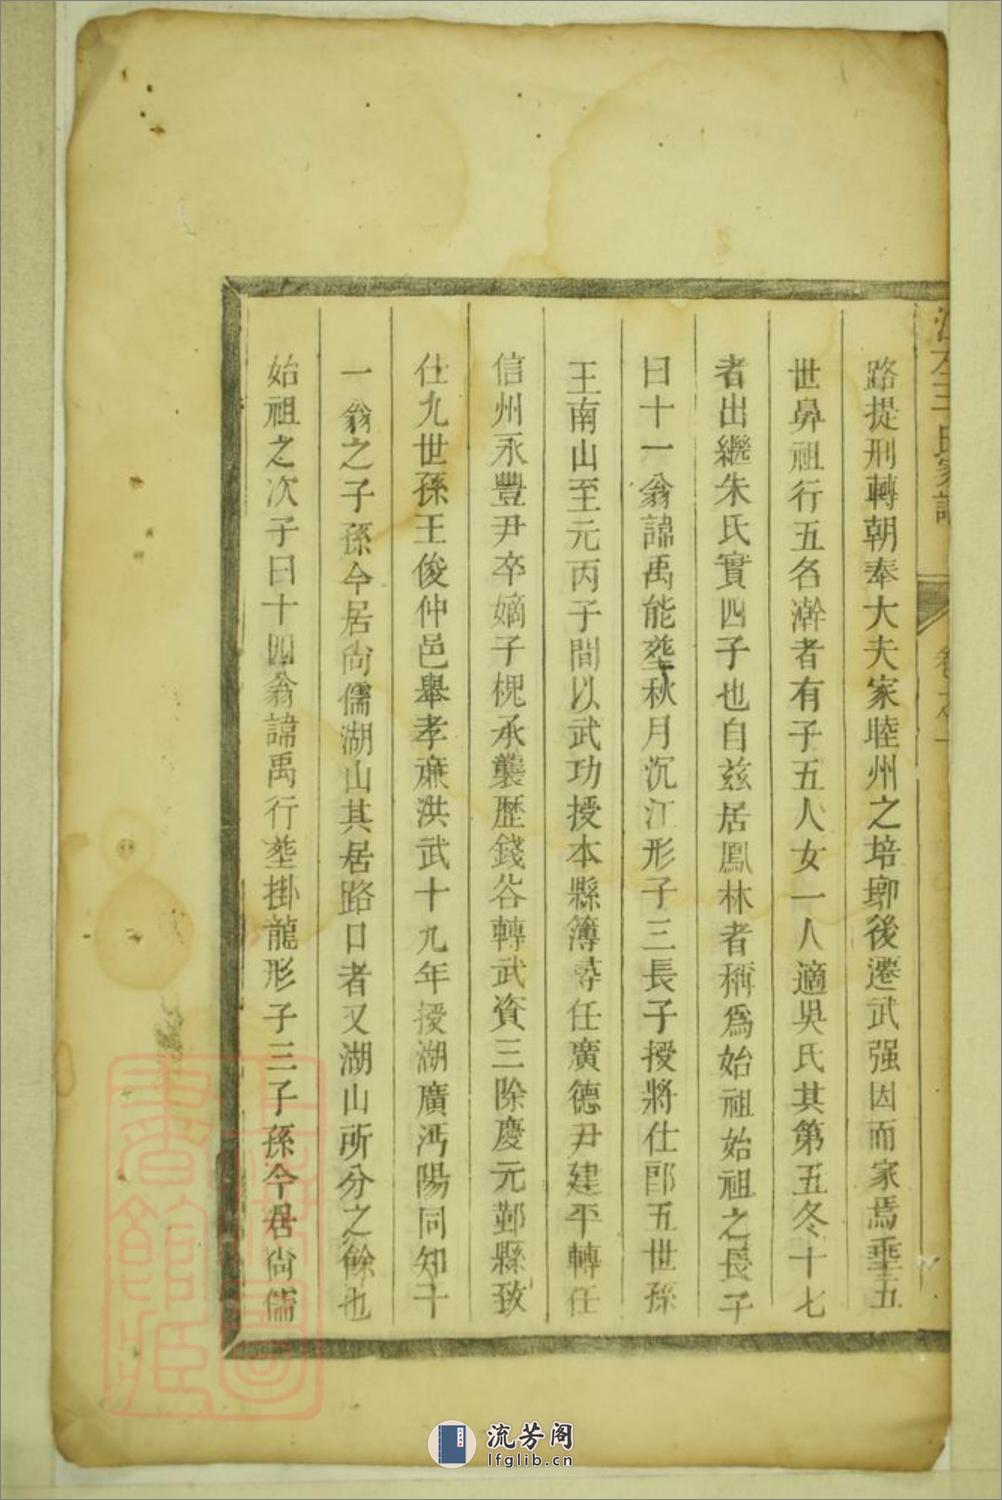 江左王氏家譜 卷之一
路提刑轉朝奉大夫家睦州之培墎後遷武强因而家焉垂五
世鼻祖行五名澣者有子五人女一人適吳氏其第五冬十七
者出繼朱氏實四子也自兹居鳳林者稱爲始祖始祖之長子
曰十一翁諱禹能塟秋月沉江形子三長子授將仕郎五世孫
王南山至元丙子間以武功授本縣簿尋任廣德尹建平轉任
信州永豐尹卒嫡子槐承襲歷錢谷轉武資三除慶元鄞縣致
仕九世孫王俊仲邑舉孝亷洪武十九年授湖廣沔陽同知十
一翁之子孫今居尙儒湖山其居路口者又湖山所分之餘也
始祖之次子曰十四翁諱禹行塟掛龍形子三子孫今居尙儒
上海圖書館藏
流芳阁
lfglib.cn